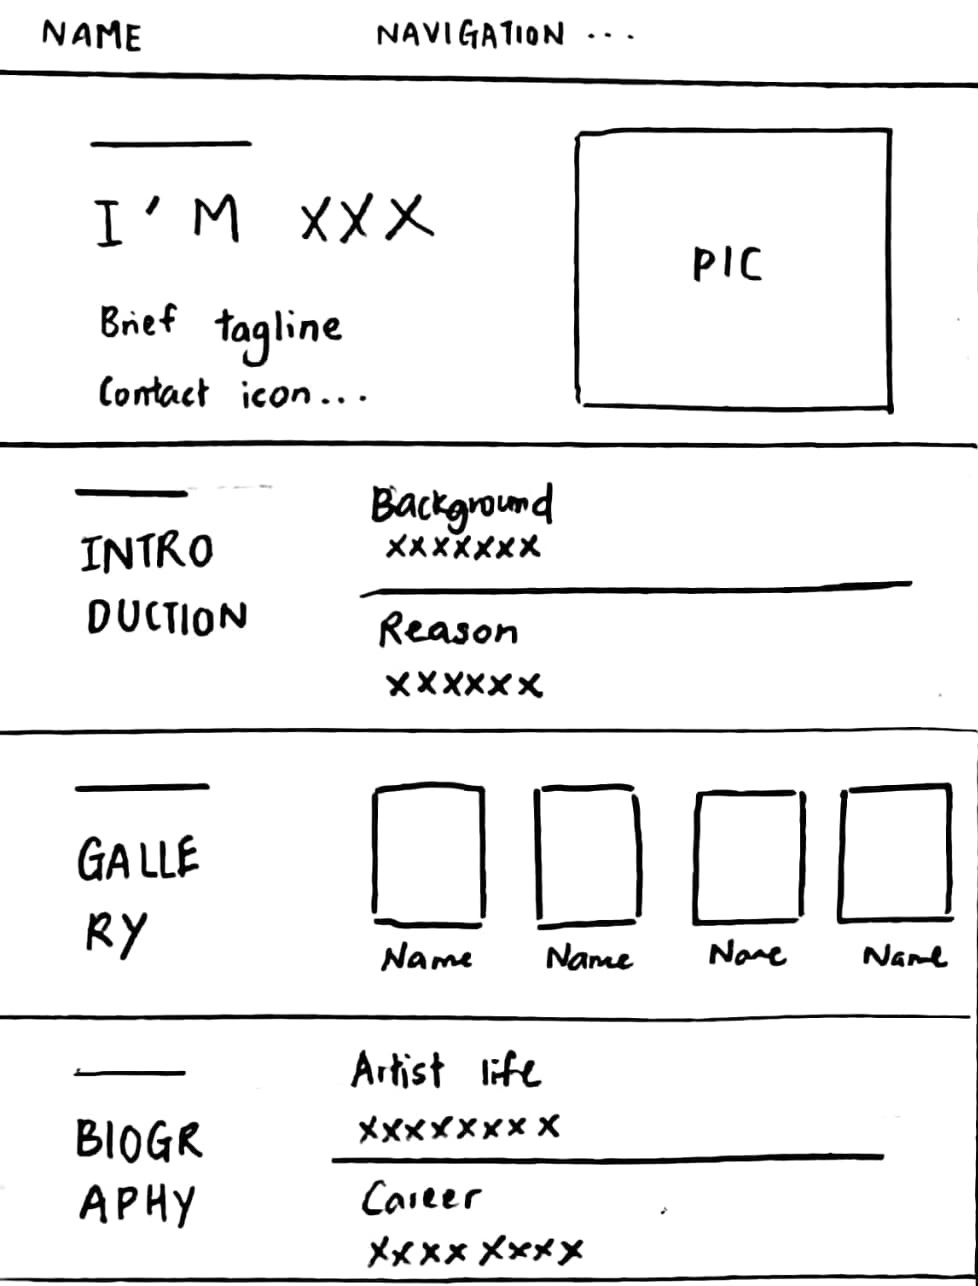 NAME NAVIGATION ...
I'M XXX
PIC
Brief tagline
Contact icon...
Background
XXXXXXX
INTRO
DUCTION
Reason
XXXXXX
GALLE
RY
Name Name Name Name
Artist life
XXXXXXXX
BIOGR
APHY
Career
XXXX XXXX